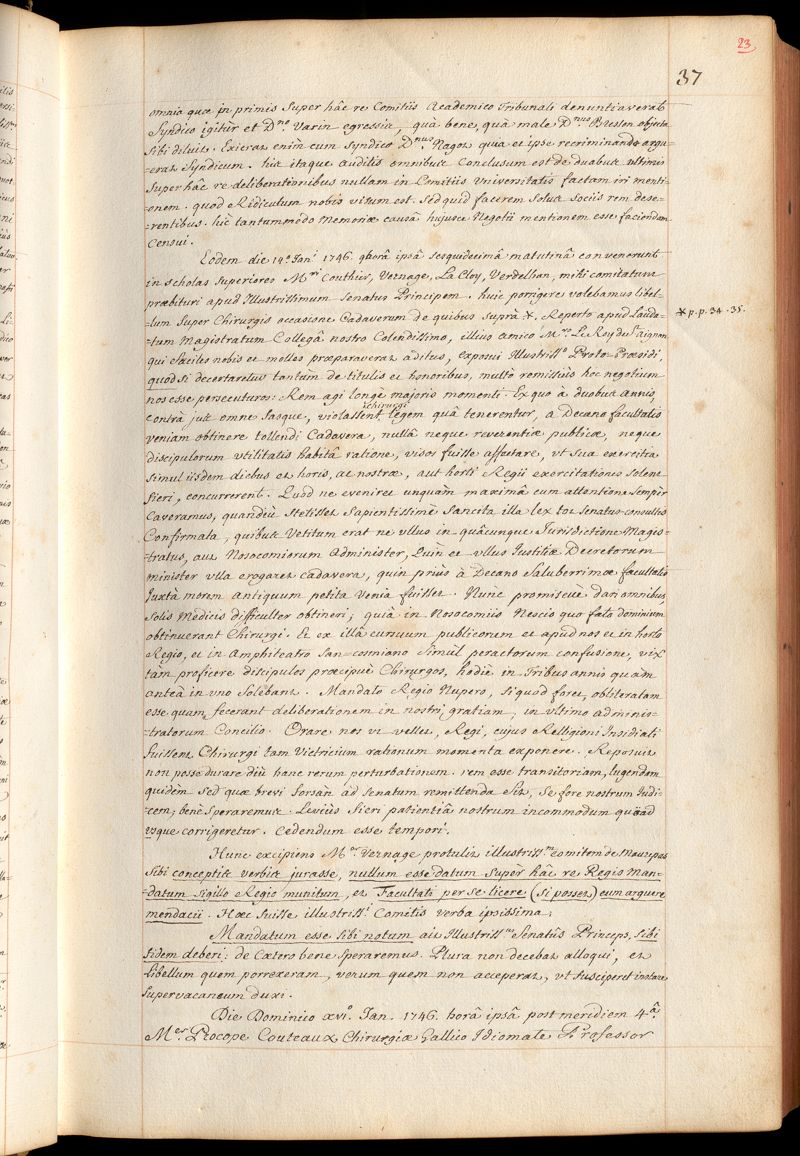 23
37
omnia quæ in primis super hâc re Comitiis Academico Tribunali denuntiaverat
Syndico igitur et D.no Varin egressis, quà bene, quà male D.nus Breston objecta
sibi diluit. Exierat enim cum syndico D.nus Ragot quia et ipse recriminando argu-
-erat Syndicum. his itaque auditis omnibus Conclusum est de duabus ultimis
super hâc re deliberationibus nullam in Comitiis Universitatis factam iri menti-
-onem. quod Ridiculum nobis visum est. sed quid facerem solus sociis rem dese-
-rentibus. hîc tantummodo Memoriæ causâ hujusce Negotii mentionem esse faciendam
Censui.
Eodem die 14.o Jan.i 1746. horâ ipsâ sesquidecimâ matutinâ convenerunt
in scholas superiores M.ri Couthier, Vernage, La Cloy, Verdelhan, mihi comitatum
præbituri apud Illustrissimum Senatus Principem. huic porrigere volebamus libel-
-lum super Chirurgis occasione Cadaverum de quibus suprà *. Reperto apud Lauda-
* p.p. 34. 35.
-tum Magistratum Collegâ nostro Colendissimo, illius amico M.ro Le Roy de S.t aignan
qui faciles nobis et molles præparaverat aditus, exposui Illustriss.o Proto-Præsidi,
quod si decertaretur tantùm de titulis et honoribus, multò remissiùs hoc negotium
nos esse persecuturos: Rem agi longè majoris momenti. Ex quo à duobus annis,
contrà jus omne fasque, violassent chirurgi legem quâ tenerentur, à Decano facultatis
veniam obtinere tollendi Cadavera, nullâ neque reverentiæ publicæ, neque
discipulorum utilitatis habitâ ratione, visos fuisse affectare, ut sua exercitia
simul iisdem diebus et horis, ac nostræ, aut horti Regii exercitationes solent
fieri, concurrerent. Quod ne eveniret unquam maximâ cum attentione semper
Caveramus, quandiù stetisset sapientissimè sancita illa lex tot senatus-consultis
Confirmata, quibus Vetitum erat ne ullus in quâcunque Jurisdictione Magis-
-tratus, aut Nosocomiorum Administer, Quin et ullus Justitiæ Decretorum
minister ulla erogaret cadavera, quin priùs à Decano Saluberrimæ facultatis
Juxtà morem antiquum petita Venia fuisset. Nunc promiscuè dari omnibus,
solis Medicis difficulter obtineri; quia in Nosocomiis Nescio quo fato dominium
obtinuerant Chirurgi. Et ex illâ cursuum publicorum et apud nos et in horto
Regio, et in Amphiteatro San-cosmiano simul peractorum confusione, vix
tàm proficere discipulos præcipuè Chirurgos, hodiè in Tribus annis quàm
anteà in uno solebant. Mandato Regio Nupero, si quod foret, obliteratam
esse quam fecerant deliberationem in nostri gratiam, in ultimo adminis-
-tratorum Concilio. Orare nos ut vellet, Regi, cujus Relligioni Insidiati
fuissent Chirurgi tam Victricium rationum momenta exponere. Reposuit
non posse durare diù hanc rerum perturbationem. rem esse transitoriam, lugendam
quidem sed quæ brevi forsàn ad senatum remittenda sit, se fore nostrum Judi-
-cem, benè speraremus. Leviùs fieri patientiâ nostrum incommodum quoad
usque corrigeretur. Cedendum esse tempori.
Hunc excipiens M.er Vernage protulit illustriss.m comitem de Maurepas
sibi conceptis verbis jurasse, nullum esse datum super hâc re Regio Man-
-datum sigillo Regio munitum, et Facultati per se licere (si posset) eum arguere
mendacii. Hæc fuisse illustriss.i Comitis verba ipsissima.
Mandatum esse sibi notum ait Illustriss.mus Senatûs Princeps, sibi
fidem deberi: de Cætero bene speraremus. Plura non decebat alloqui, et
libellum quem porrexeram, verum quem non acceperat, ut susciperet instare
supervacaneum duxi.
Die Dominico xvi.o Jan. 1746. horâ ipsâ post meridiem 4.â
M.er Procope Couteaux Chirurgiæ Gallico Idiomate Professor